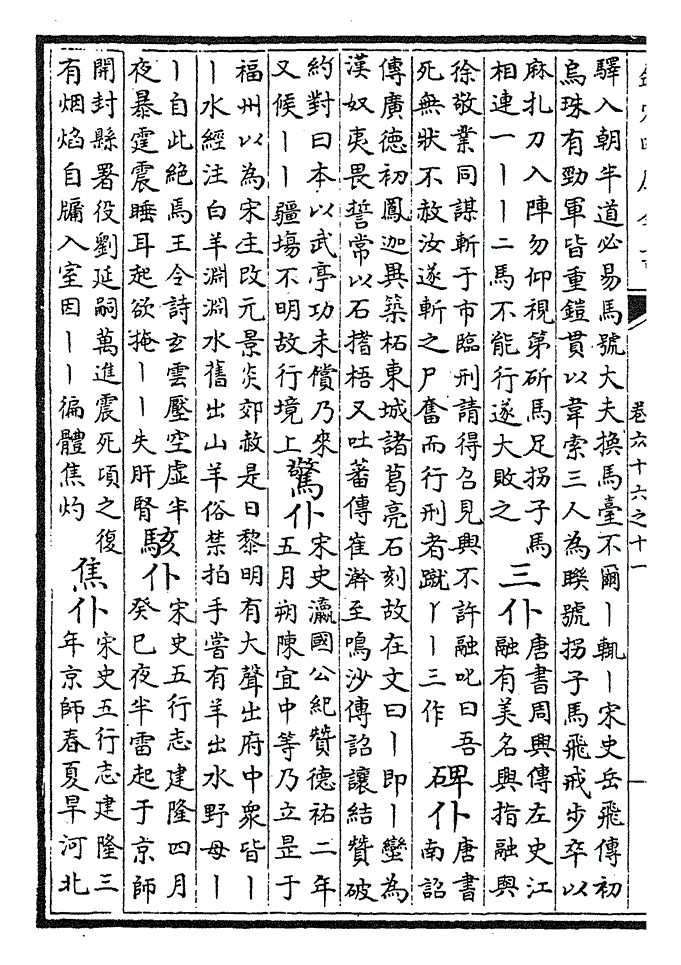 卷六十六之十一
驛入朝半道必易馬號大夫換馬臺不爾丨輒丨宋史岳飛傳初
烏珠有勁軍皆重鎧貫以韋索三人為聫號拐子馬飛戒步卒以
麻扎刀入陣勿仰視第斫馬足拐子馬
相連一丨丨二馬不能行遂大敗之
三仆
唐書周興傳左史江
融有美名興指融與
徐敬業同謀斬于市臨刑請得召見興不許融叱曰吾
死無狀不赦汝遂斬之尸奮而行刑者蹴丨丨三作
碑仆
唐書
南詔
傳廣德初鳳迦異築柘東城諸葛亮石刻故在文曰丨即丨蠻為
漢奴夷畏誓常以石搘梧又吐蕃傳崔澣至鳴沙傳詔讓結贊破
約對曰本以武亭功未償乃來
又候丨丨疆場不明故行境上
驚仆
宋史瀛國公紀贊德祐二年
五月朔陳宜中等乃立昰于
福州以為宋主改元景炎郊赦是日黎明有大聲出府中衆皆丨
丨水經注白羊淵淵水舊出山羊俗禁拍手嘗有羊出水野母丨
丨自此絶馬王令詩玄雲壓空虛半
夜暴霆震睡耳起欲掩丨丨失肝腎
駭仆
宋史五行志建隆四月
癸巳夜半雷起于京師
開封縣署役劉延嗣萬進震死頃之復
有烟焰自牖入室因丨丨徧體焦灼
焦仆
宋史五行志建隆三
年京師春夏旱河北